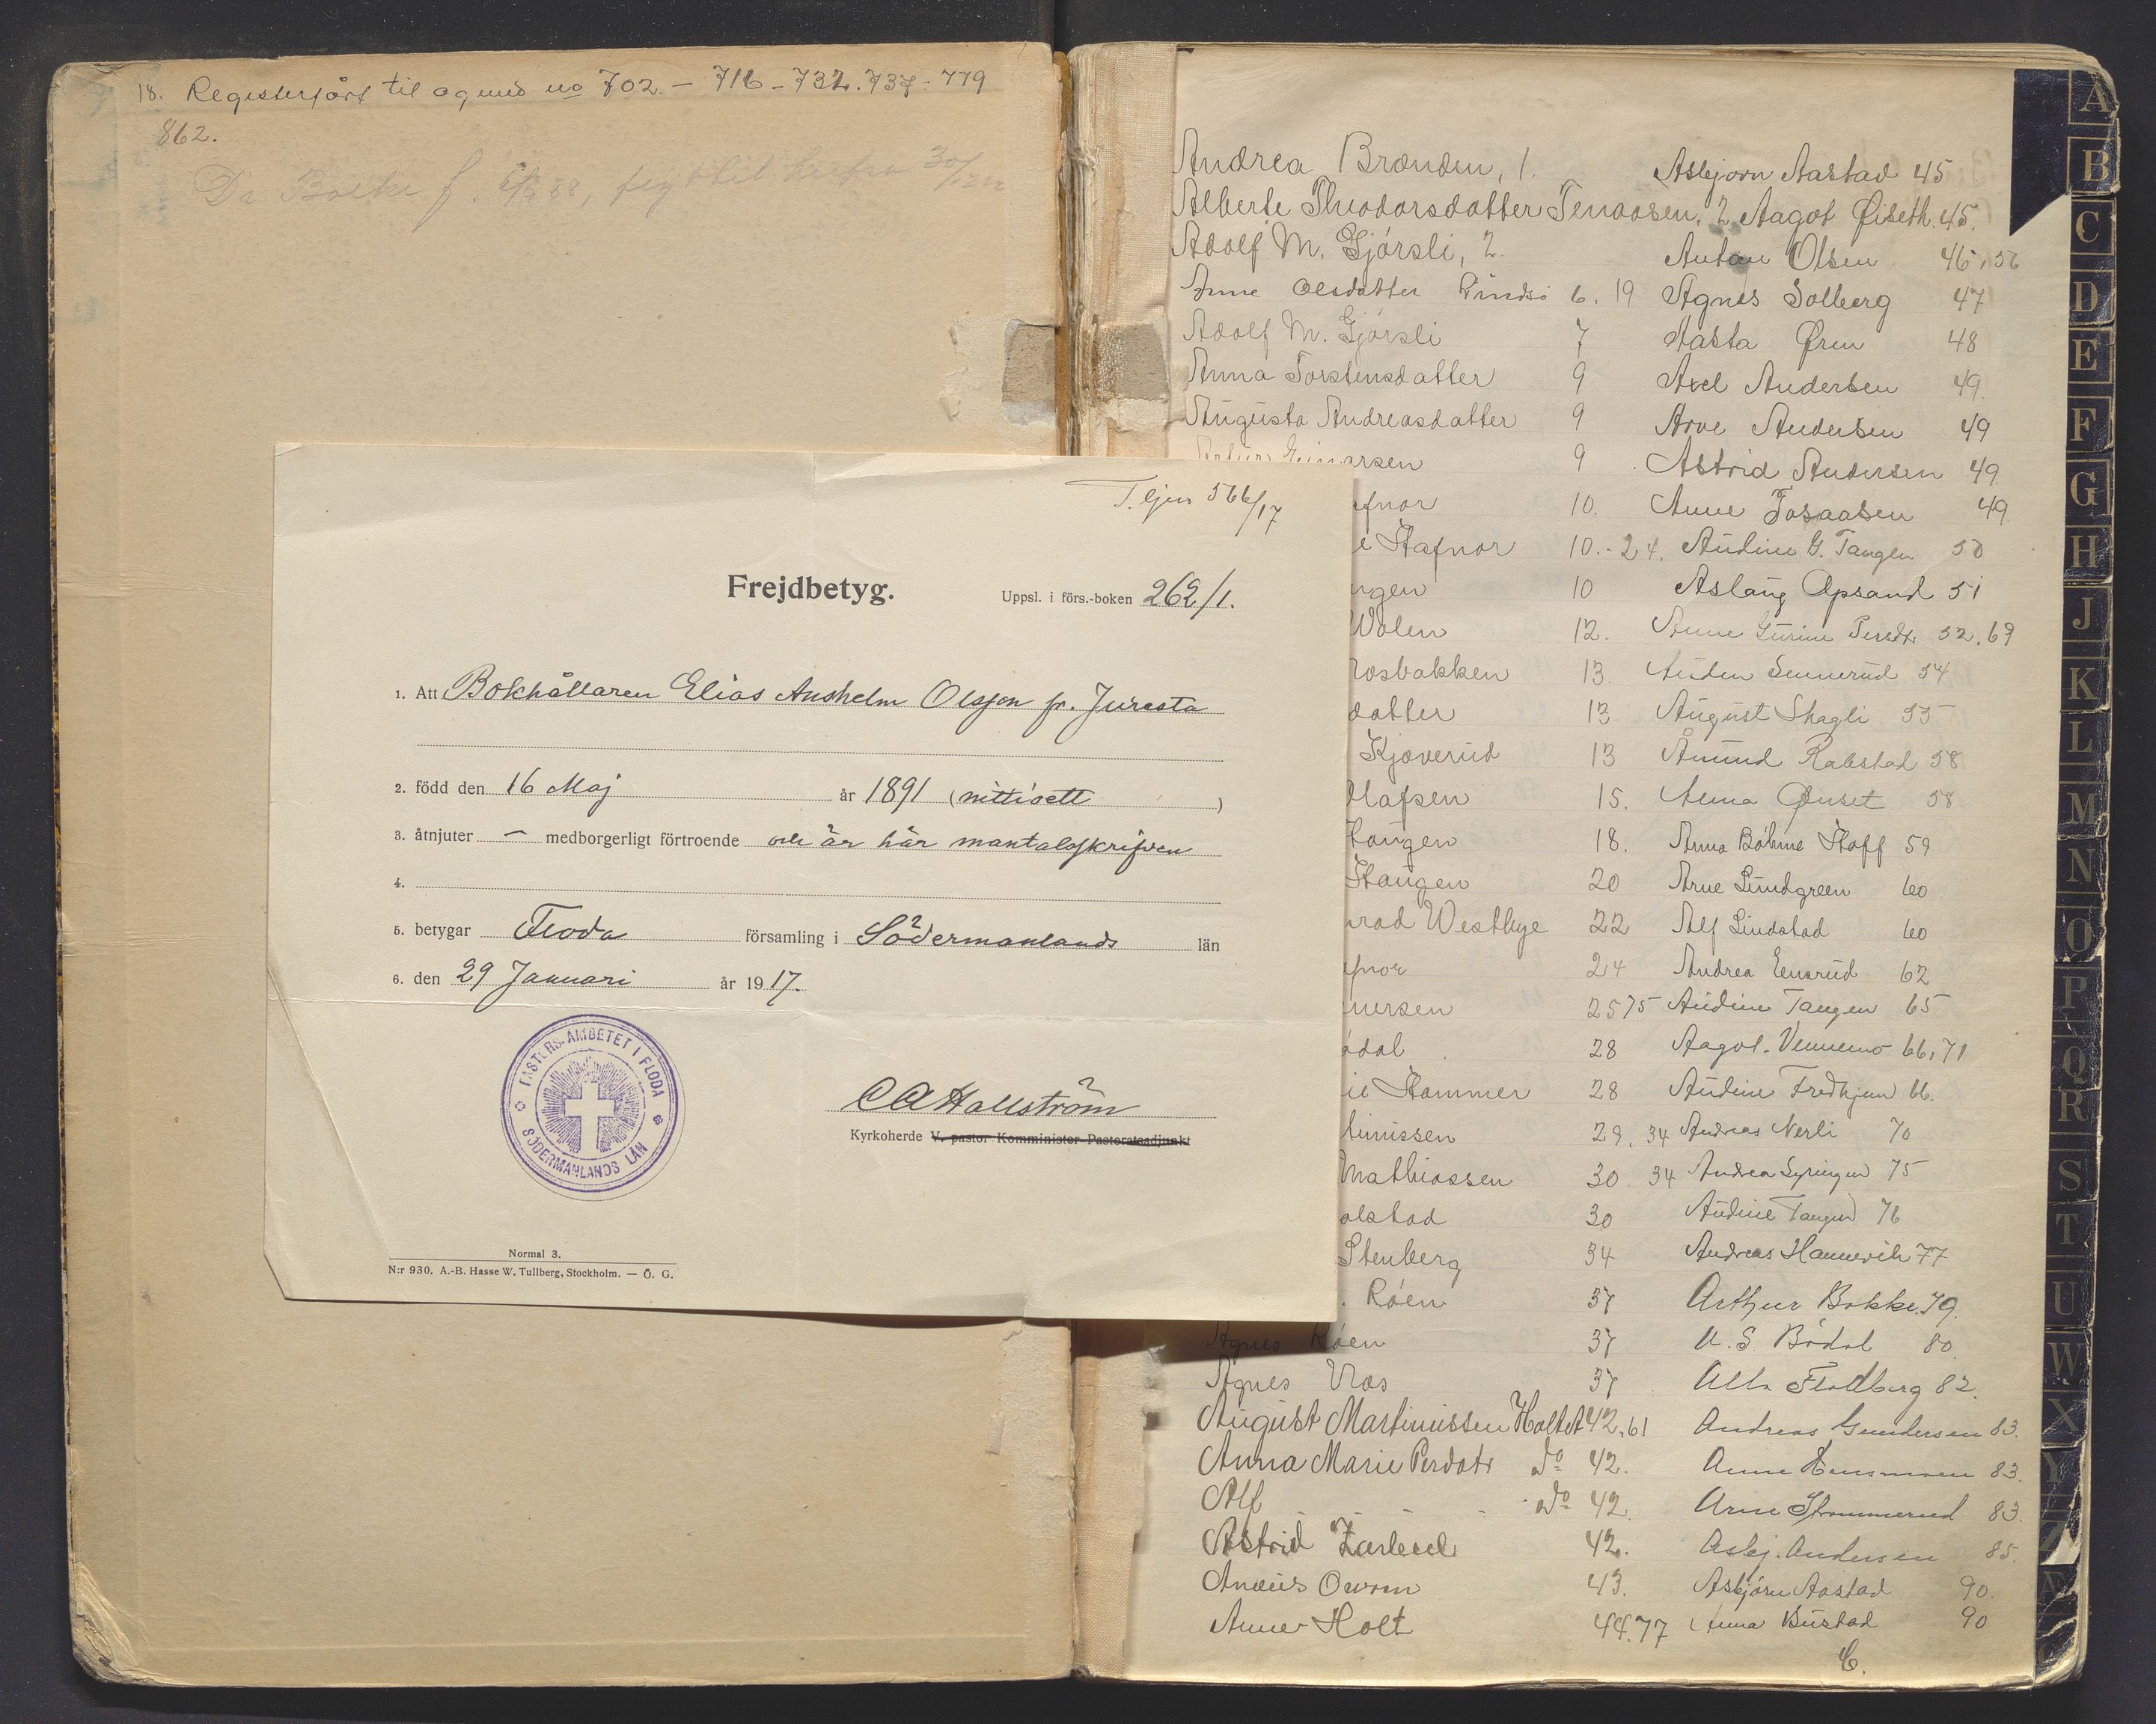 18. Registerført til og med no 702. - 716 - 732. 737 - 779
862.
T. ljur 566/17
Frejdbetyg.
Uppsl. i förs.-boken 262/1.
1. Att Bokhållaren Elias Anshelm Olsson fr. Juresta
2. född den 16 Maj år 1891 (nittioett)
3. åtnjuter — medborgerligt förtroende och är här mantalsskrifven
4.
5. betygar Floda församling i Södermanlands län
6. den 29 Januari år 1917.
PASTORS-ÄMBETET I FLODA
SÖDERMANLANDS LÄN
C A Hallström
Kyrkoherde V. pastor Komminister Pastoratsadjunkt
Normal 3.
N:r 930. A.-B. Hasse W. Tullberg, Stockholm. — Ö. G.
Andrea Brænden, 1.
Alberte Theodorsdatter Tenaasen, 2
Adolf M. Gjørsli, 2.
Anne Olsdatter Rindsø 6. 19
Adolf M. Gjørsli 7
Anna Torstensdatter 9
Augusta Andreasdatter 9
arsen 9
fnor 10.
e Stafnor 10.-24.
ngen 10
Wolen 12.
rosbakken 13.
datter 13
Kjøverud 13
Olafsen 15.
Haugen 18.
Haugen 20
rad Westbye 22
fnor 24
nersen 25 75
ødal 28
ie Hammer 28
tinissen 29, 34
Mathiassen 30. 34
olstad 30
Stenberg 34
. Røen 37
Agnes Røen 37
Agnes Vras 37
August Martinissen Holtet 42, 61
Anna Marie Persdatr do 42.
Alf - - - do 42.
Astrid 42.
Anæus 43.
Anne Holt 44. 77
Asbjørn Aastad 45
Aagot Øiseth 45.
Anton Olsen 46, 56
Agnes Solberg 47
Aasta Øren 48
Axel Andersen 49.
Arve Andersen 49
Astrid Andersen 49.
Anne Josaasen 49.
Audine G. Tangen 50
Aslaug Opsand 51
Anne Gurine Persdtr 52. 69
Auden Sennerud 54
August Skagli 55
Åmund Rabstad 58
Alma Ønset 58
Anna Böhme Hoff 59
Arne Lundgreen 60
Alf Lindstad 60
Andrea Eensrud 62
Audine Tangen 65
Aagot Vennemo 66, 71
Audine Fredhjem 66.
Andreas Nerli 70
Andrea Syringen 75
Audine Tangen 76
Andreas Hannevik 77
Arthur Bakke 79.
A. S Bødal 80.
Alb. Flodberg 82.
Andreas Gundersen 83.
Anne Hansmoen 83.
Arne Strømmerud 83.
Asbj. Andersen 85.
Asbjørn Aastad 90.
Anna Bustad 90
C.
A
B
C
D
E
F
G
H
J
K
L
M
N
O
P
Q
R
S
T
U
W
X
Y
Z